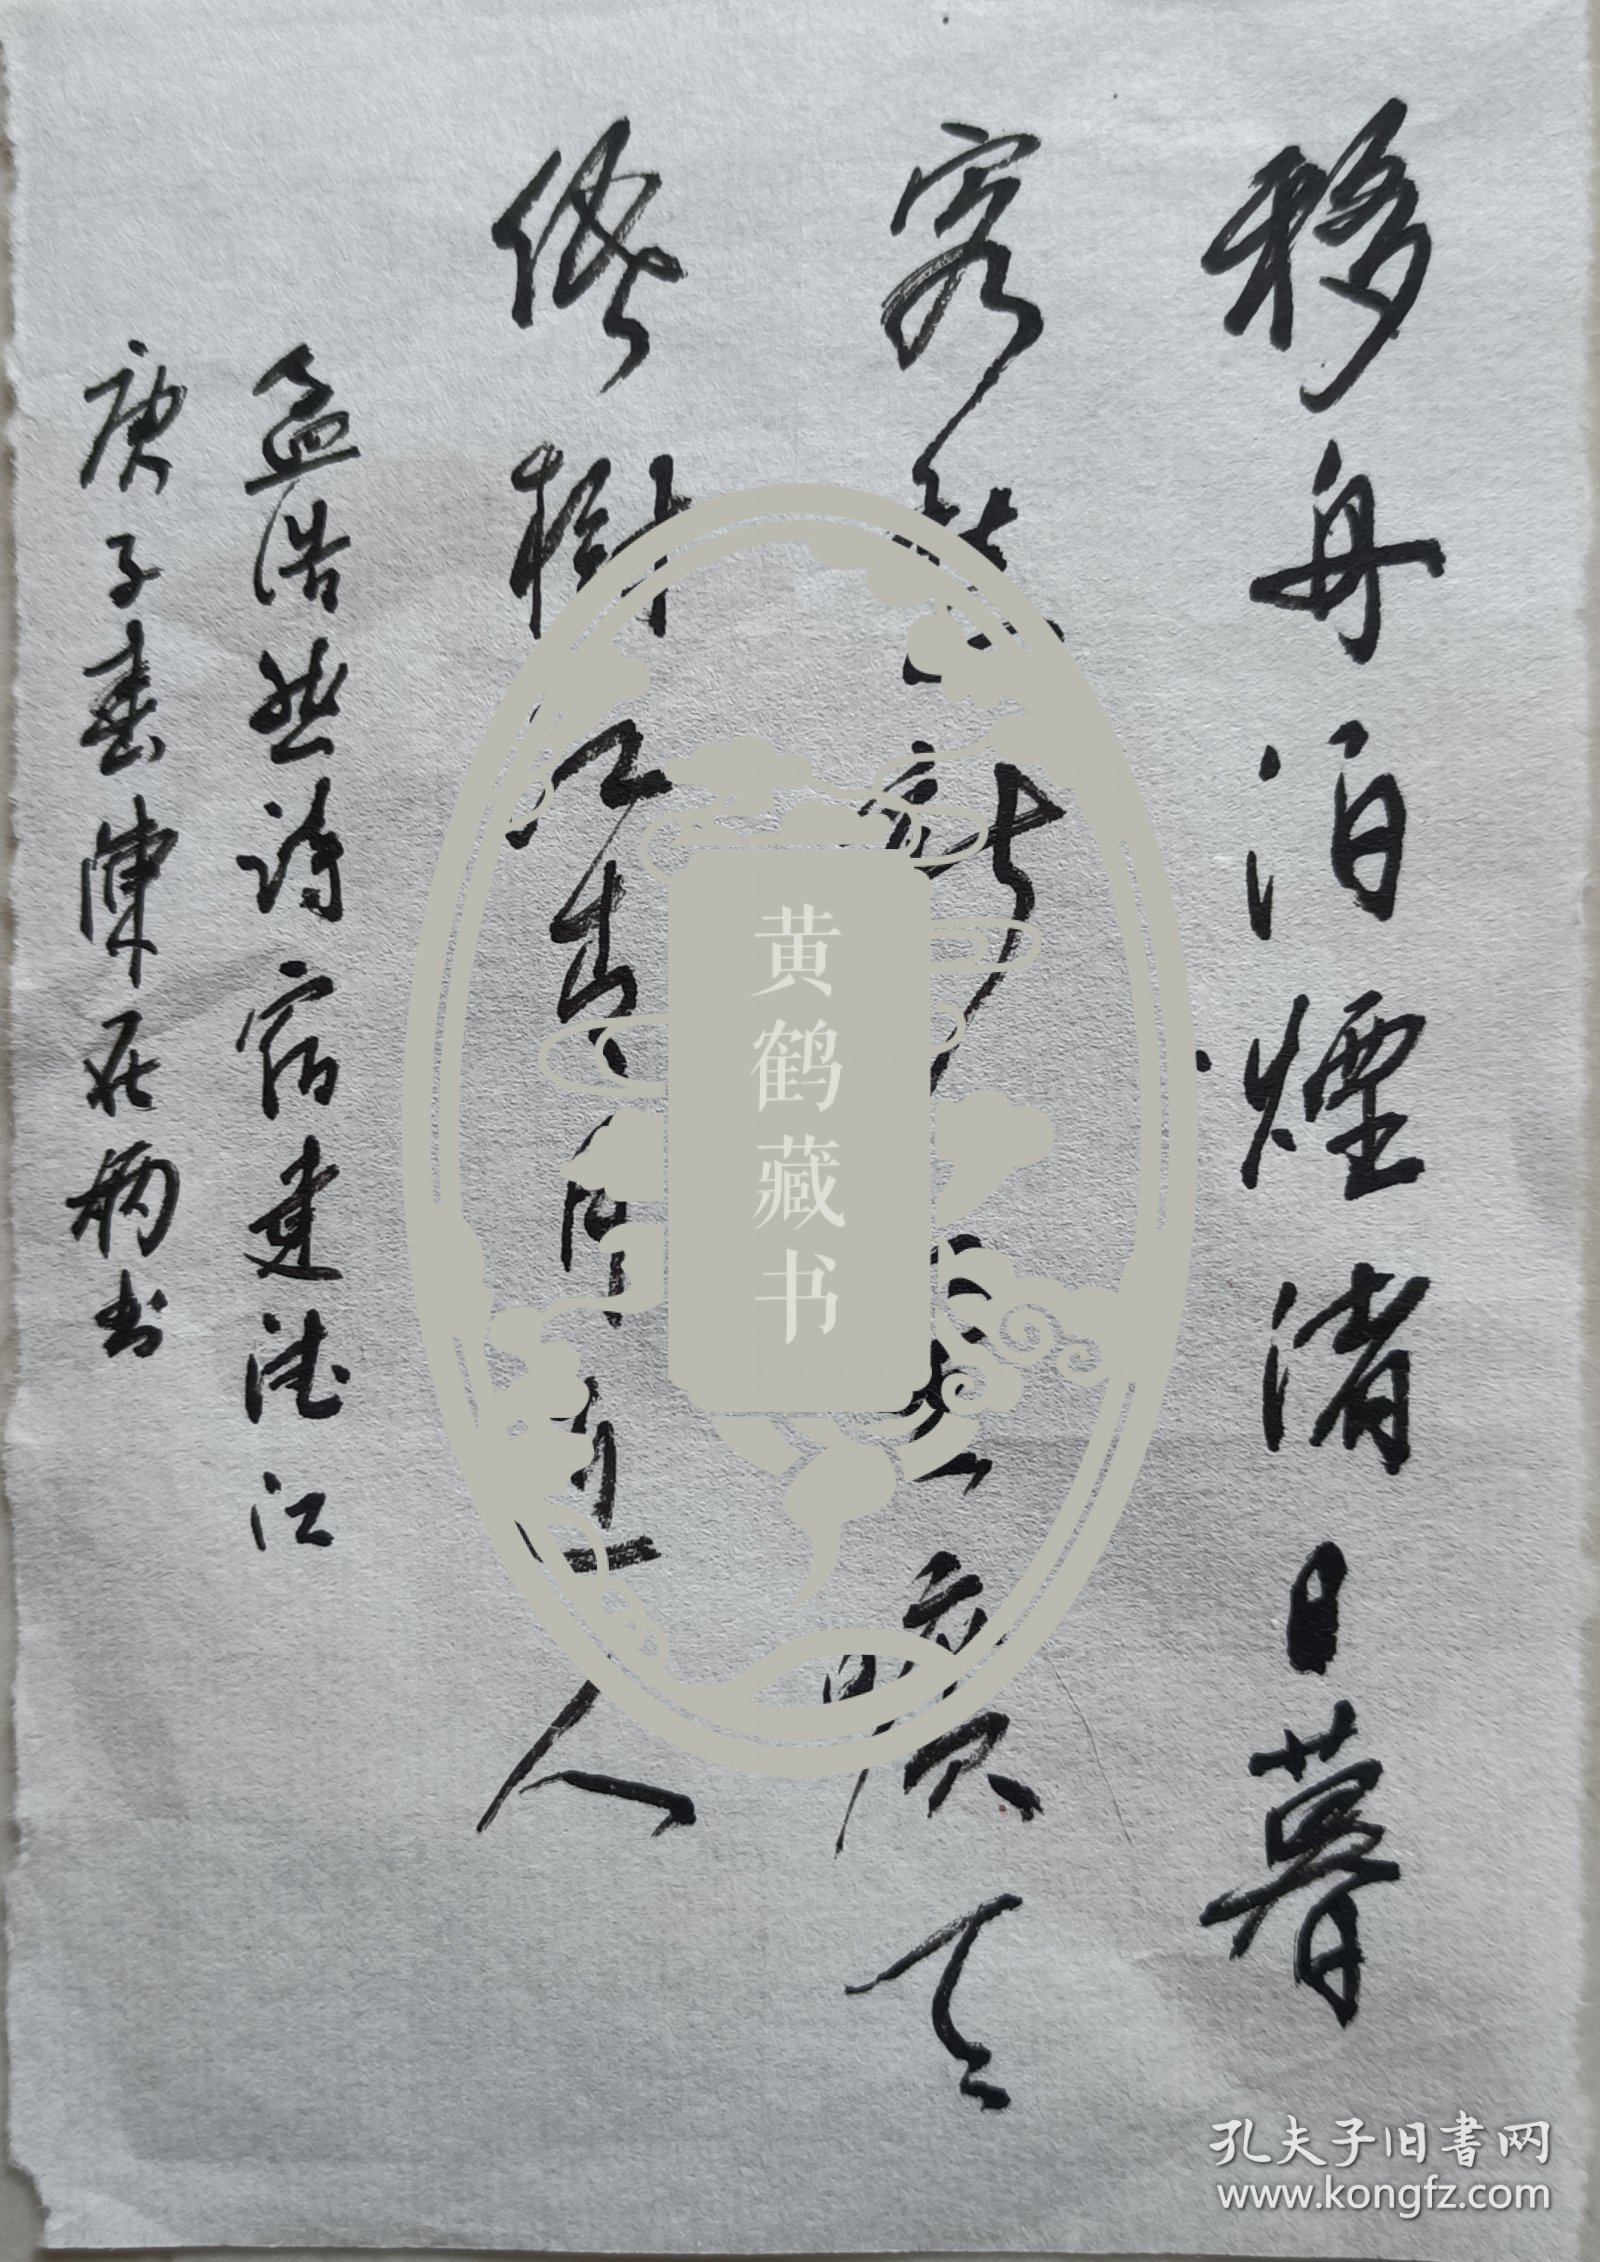 移舟泊煙渚日暮
客愁新野曠天
低樹江清月近人
孟浩然诗宿建德江
庚子春陳在炳书
黄鹤藏书
孔夫子旧书网
www.kongfz.com